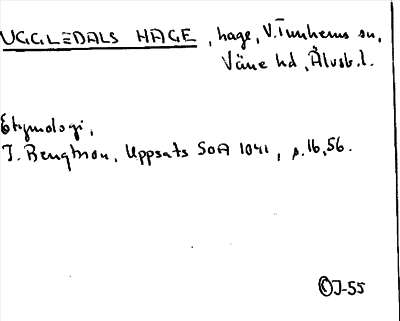 UGGLEDALS HAGE, hage, V. Tunhems sn,
Väne hd, Älvsb. l.
Etymologi,
J. Bengtson, Uppsats SOA 1041, s. 16, 56.
J-55